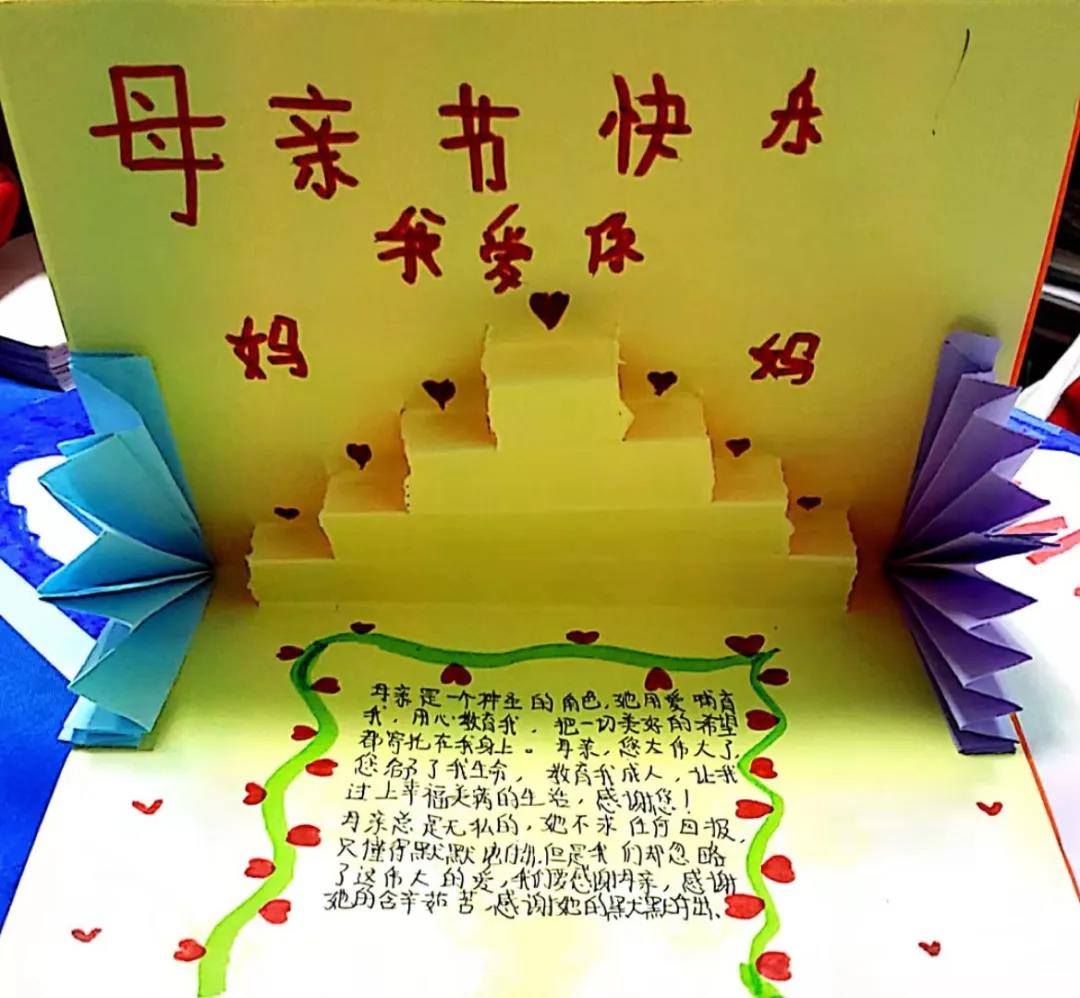 母亲节快乐
我爱你
妈 妈
母亲是一个神圣的角色,她用爱哺育
我,用心教育我,把一切美好的希望
都寄托在我身上。母亲,您太伟大了,
您给予了我生命,教育我成人,让我
过上幸福美满的生活,感谢您!
母亲总是无私的,她不求任何回报,
只懂得默默地付出,但是我们却忽略
了这伟大的爱,我们要感谢母亲,感谢
她的含辛茹苦,感谢她的默默付出、